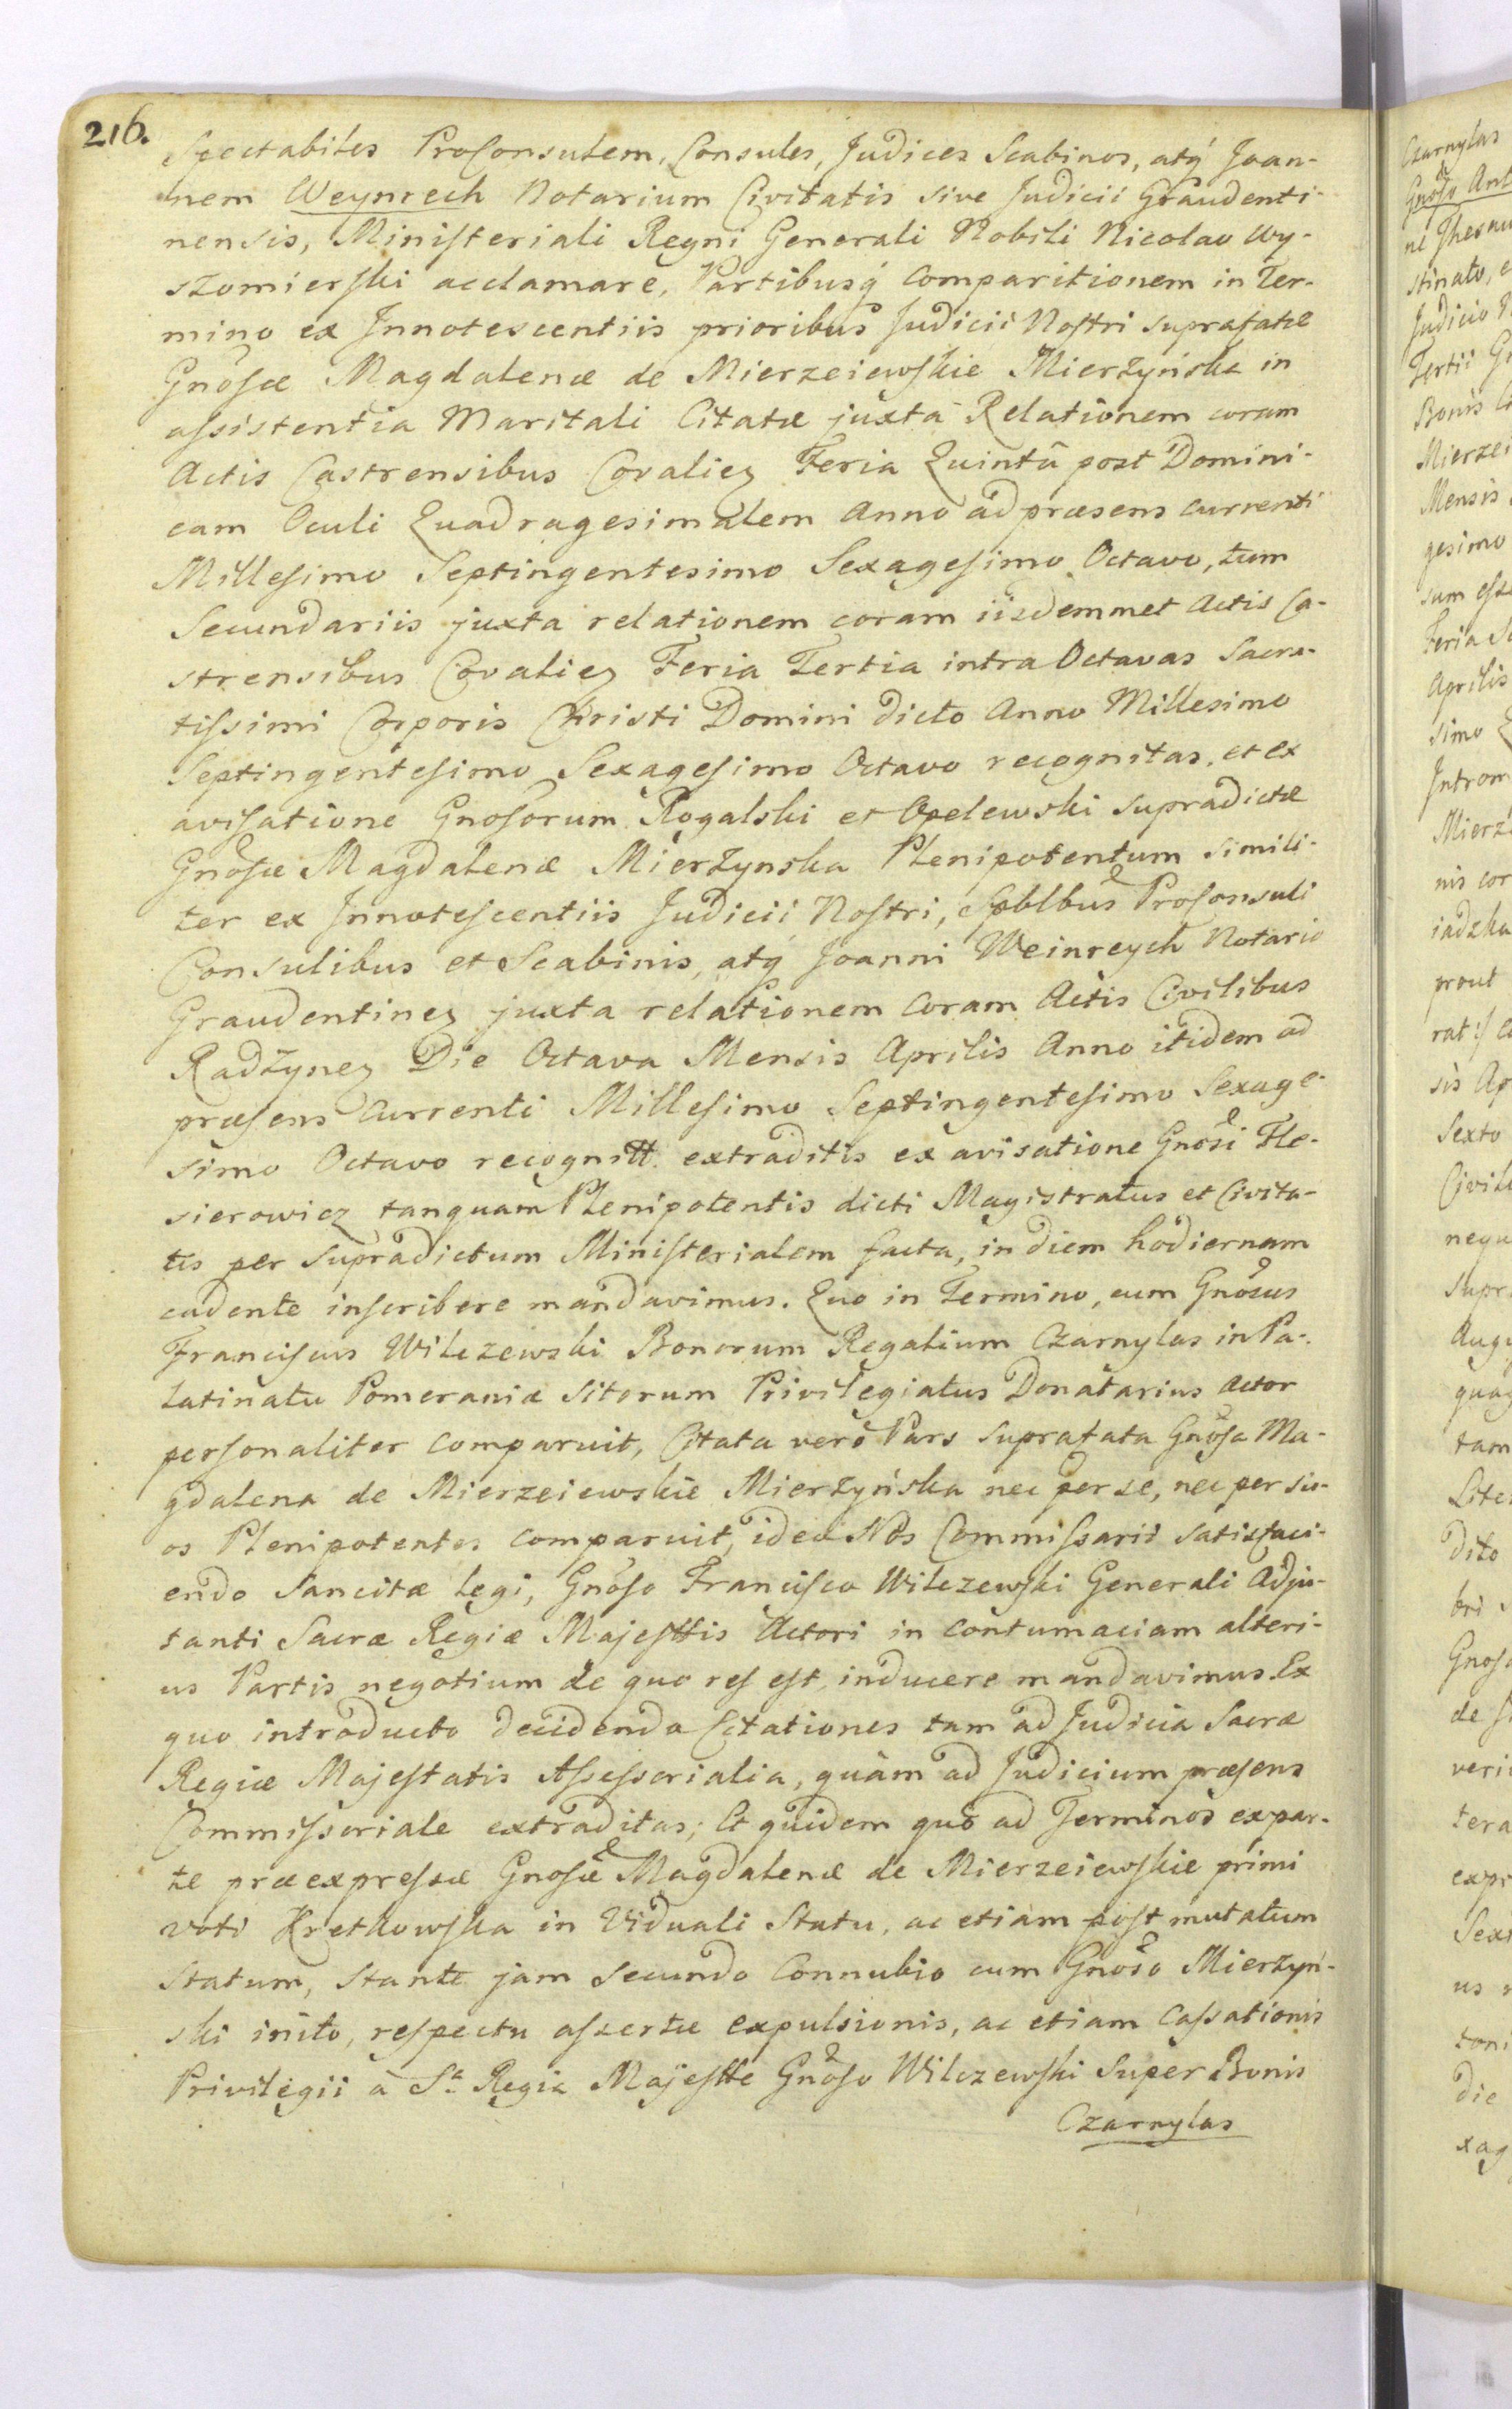 216.
Spectabiles Proconsulem, Consules, Judices Scabinos, atq́ Joan-
nem Weynrech Notarium Civitatis sive Judicii Graudenti-
nensis, Ministeriali Regni Generali Nobili Nicolao Wy-
szomierski acclamare, Partibusq́ comparitionem in Ter-
mino ex Innotescentiis prioribus Judicii Nostri suprafatæ
Gnosæ Magdalenæ de Mierzeiewskie Mierzyńska in
assistentia Maritali Citatæ juxta Relationem coram
Actis Castrensibus Covalien Feria Quintâ post Domini-
cam Oculi Quadragesimalem Anno ad præsens currenti
Millesimo Septingentesimo Sexagesimo Octavo, tum
Secundariis juxta relationem coram iisdemmet Actis Ca-
strensibus Covalien Feria Tertia intra Octavas Sacra-
tissimi Corporis Christi Domini dicto Anno Millesimo
Septingentesimo Sexagesimo Octavo recognitas, et ex
avisatione Gnosorum Rogalski et Opelewski supradictæ
Gnosæ Magdalenæ Mierzynska Plenipotentum simili-
ter ex Innotescentiis Judicii Nostri, Spblbus Proconsuli
Consulibus et Scabinis, atq́ Joanni Weinreych Notario
Graudentinen juxta relationem coram Actis Civilibus
Radzynen Die Octava Mensis Aprilis Anno itidem ad
præsens currenti Millesimo Septingentesimo Sexage-
simo Octavo recognitt. extraditis ex avisatione Gnosi Fle-
sierowicz tanquam Plenipotentis dicti Magistratus et Civita-
tis per supradictum Ministerialem facta, in diem hodiernam
cadente inscribere mandavimus. Quo in Termino, cum Gnosus
Franciscus Wilczewski Bonorum Regalium Czarnylas in Pa-
latinatu Pomeraniæ sitorum Privilegiatus Donatarius Actor
personaliter comparuit, Citata vero Pars suprafata Gnosa Ma-
gdalena de Mierzeiewskie Mierzyńska nec per se, nec per su-
os Plenipotentes comparuit, ideo Nos Commissarii satisfaci-
endo Sancitæ legi, Gnoso Francisco Wilczewski Generali Adju-
tanti Sacræ Regiæ Majesttis Actori in contumaciam alteri-
us Partis negotium de quo res est inducere mandavimus. Ex
quo introducto decidendo Citationes tam ad Judicia Sacræ
Regiæ Majestatis Assessorialia, quàm ad Judicium præsens
Commissoriale extraditas; Et quidem quo ad Terminos ex par-
te præexpressæ Gnosæ Magdalenæ de Mierzeiewskie primi
voti Kretkowska in Viduali Statu, ac etiam post mutatum
Statum, stante jam secundo Connubio cum Gnoso Mierzyń-
ski inito, respectu assertæ expulsionis, ac etiam Cassationis
Privilegii à Sa Regia Majestte Gnoso Wilczewski Super Bonis
Czarnylas